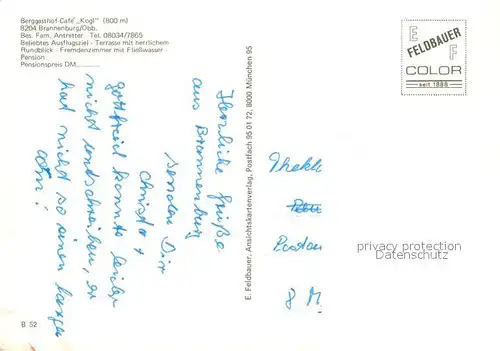 Berggasthof-Café „Kogl" (800 m)
8204 Brannenburg/Obb.
Bes. Fam. Antretter · Tel. 08034/7865
Beliebtes Ausflugsziel - Terrasse mit herrlichem
Rundblick - Fremdenzimmer mit Fließwasser -
Pension
Pensionspreis DM
Herzliche Grüße
aus Brannenburg
senden Dir
Christa +
Gottfried konnte leider
nicht unterschreiben, er
hat nicht so einen langen
Arm!
E. Feldbauer, Ansichtskartenverlag, Postfach 95 01 72, 8000 München 95
E
FELDBAUER
F
COLOR
seit 1886
Thekl
8 M
privacy protection
Datenschutz
B 52